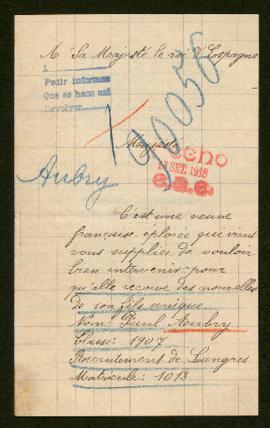 A Sa Majesté le roi d'Espagne
Pedir informes
Que se hace así
Devolver
Majesté
Aubry
SET. 1918
C'est une veuve
française éplorée qui viens
vous supplier de vouloir
bien intervenir pour
qu'elle reçoive des nouvelles
de son fils unique
Nom: Paul Aubry
Classe: 1907
Recrutement de Langres
Matricule: 1013